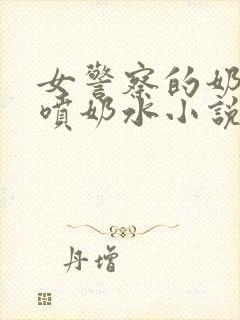 女警察的奶
噴奶水小說
丹增